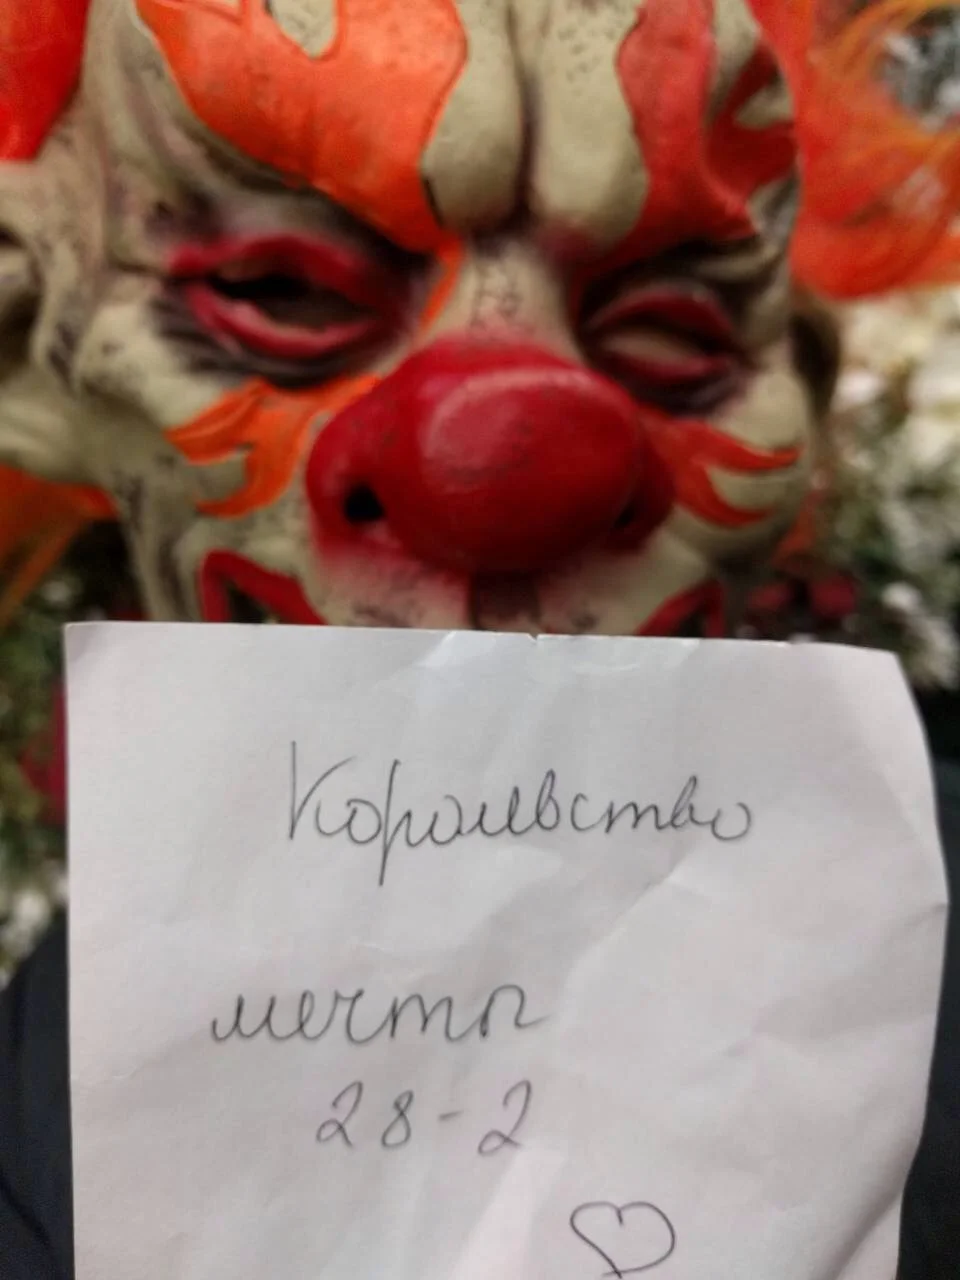 Королевство
мечты
28-2